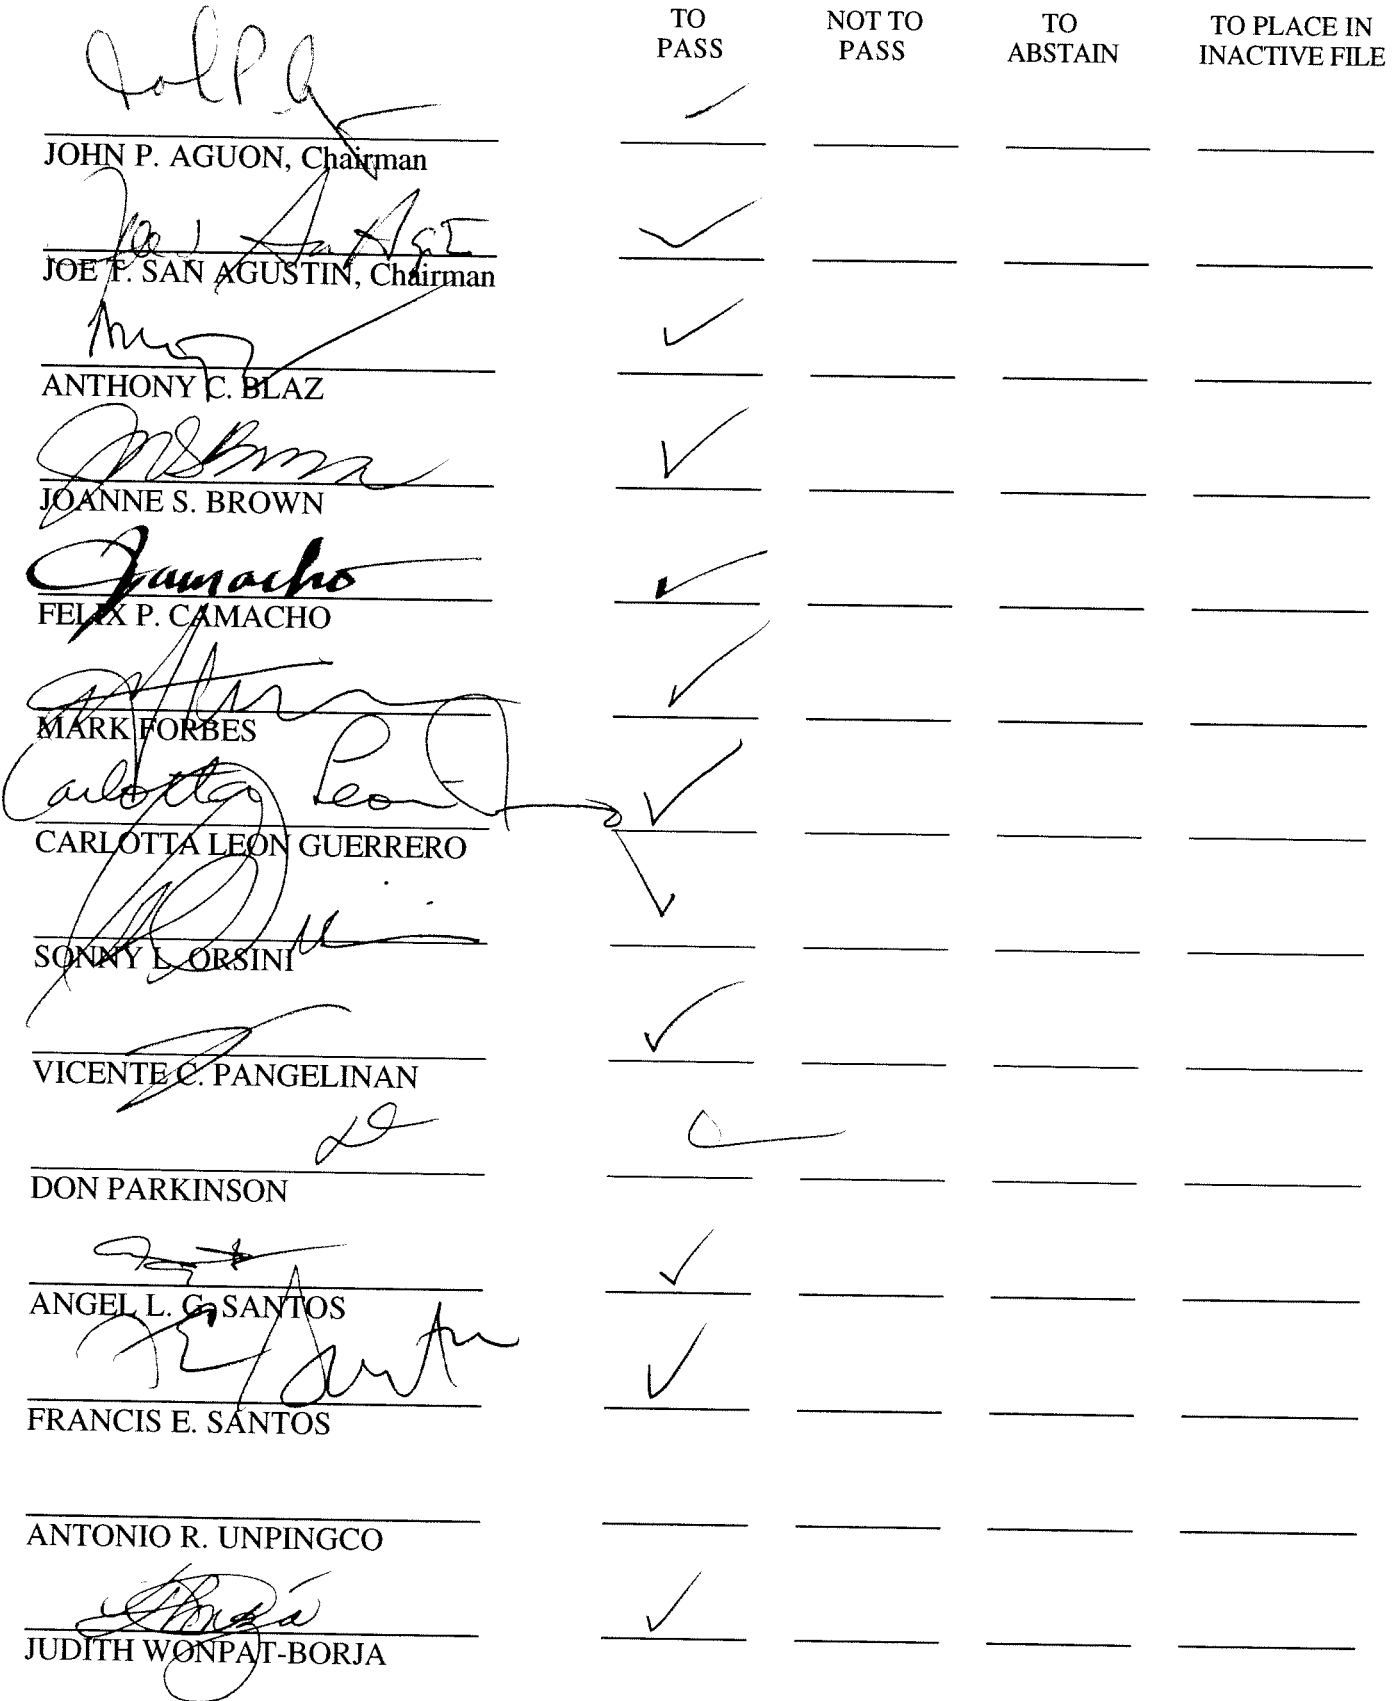 TO PASS NOT TO PASS TO ABSTAIN TO PLACE IN INACTIVE FILE
JOHN P. AGUON, Chairman
JOE T. SAN AGUSTIN, Chairman
ANTHONY C. BLAZ
JOANNE S. BROWN
Camacho
FELIX P. CAMACHO
MARK FORBES
Carlotta Leon
CARLOTTA LEON GUERRERO
SONNY L. ORSINI
VICENTE C. PANGELINAN
DON PARKINSON
ANGEL L. G. SANTOS
FRANCIS E. SANTOS
ANTONIO R. UNPINGCO
JUDITH WONPAT-BORJA